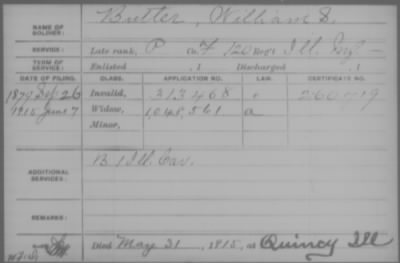 NAME OF SOLDIER: Butler, William S.
SERVICE: Late rank, P Co. F, 120 Reg't Ill. Inf.
TERM OF SERVICE: Enlisted , 1 Discharged , 1
DATE OF FILING. CLASS. APPLICATION NO. LAW. CERTIFICATE NO.
1879 26 Invalid, 313468
1915 June 7 Widow, 1,048,561 a
Minor,
ADDITIONAL SERVICES: B 1 Ill. Cav.
REMARKS:
Died May 31, 1915, at Quincy Ill